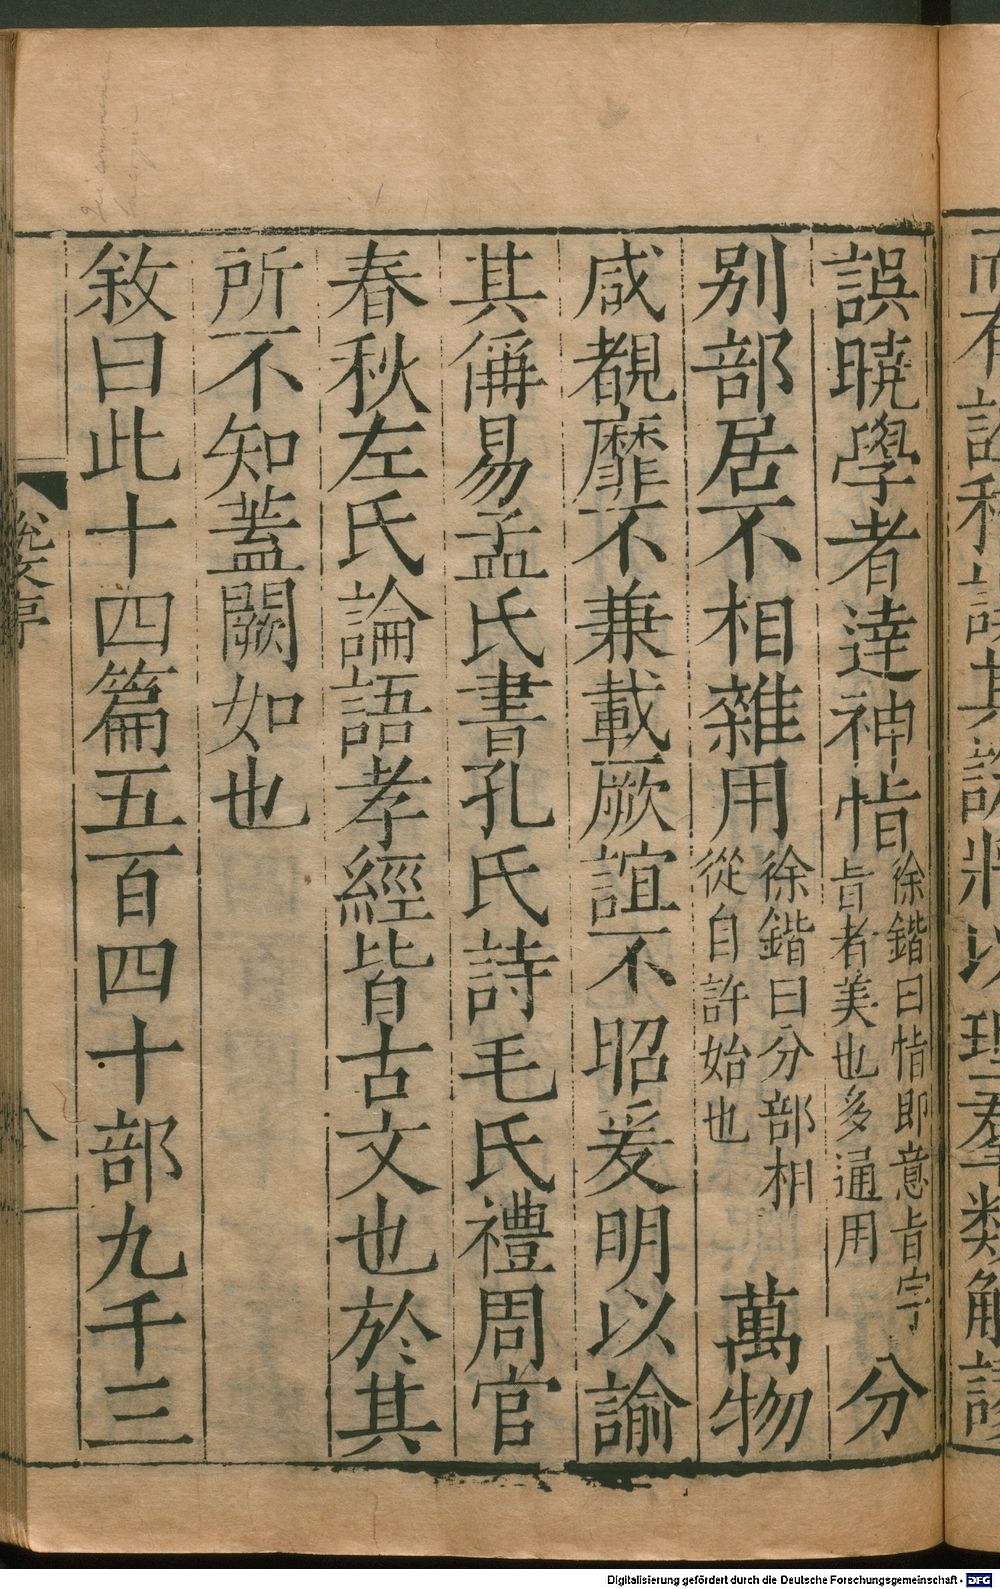 誤曉學者達神恉
徐鍇曰恉即意旨字
旨者美也多通用
分
別部居不相雜用
徐鍇曰分部相
從自許始也
萬物
咸覩靡不兼載厥誼不昭爰明以諭
其偁易孟氏書孔氏詩毛氏禮周官
春秋左氏論語孝經皆古文也於其
所不知蓋闕如也
敘曰此十四篇五百四十部九千三
說文序
八
Digitalisierung gefördert durch die Deutsche Forschungsgemeinschaft - DFG